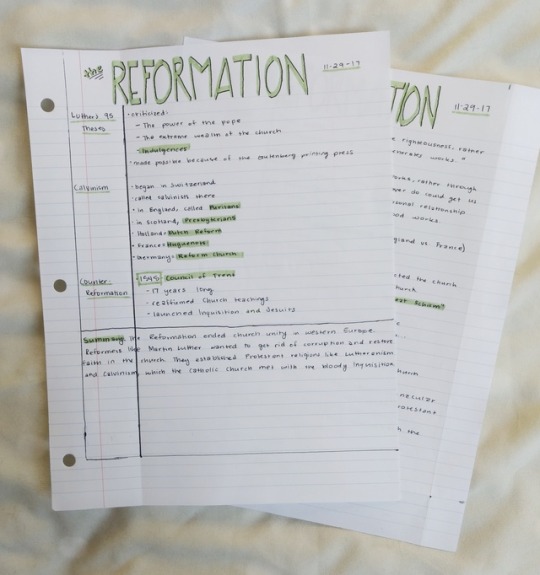 the REFORMATION 11-29-17
Luther's 95 Theses
· criticized:
- The power of the pope
- The extreme wealth of the church
- Indulgences
· made possible because of the Gutenberg printing press
Calvinism
· began in Switzerland
· called Calvinists there
· in England, called Puritans
· in Scotland, Presbyterians
· Holland = Dutch Reform
· France = Huguenots
· Germany = Reform Church
Counter-Reformation
· 1545 Council of Trent
- 17 years long
- reaffirmed Church teachings
- launched Inquisition and Jesuits
Summary: The Reformation ended church unity in western Europe.
Reformers like Martin Luther wanted to get rid of corruption and restore
faith in the church. They established Protestant religions like Lutheranism
and Calvinism, which the Catholic Church met with the bloody Inquisition
TION 11-29-17
righteousness, rather
works."
rather through
do could get us
relationship
works
England vs. France)
the church
church
Schism?
church
the